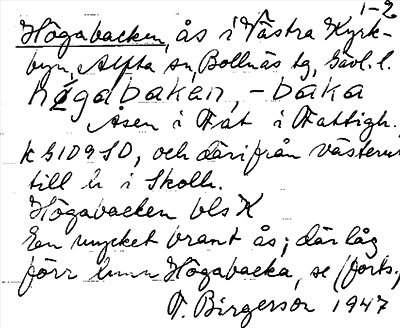 1-2
Högabacken, ås i Västra Kyrk-
byn, Alfta sn, Bollnäs tg, Gävl. l.
högabakan, -baka
Åsen i Fat i Fattigh.
k G109 SD, och därifrån västerut
till h i Skolh.
Högabacken bls K
En mycket brant ås; där låg
förr hmn Högabacka, se (forts.)
F. Birgerson 1947